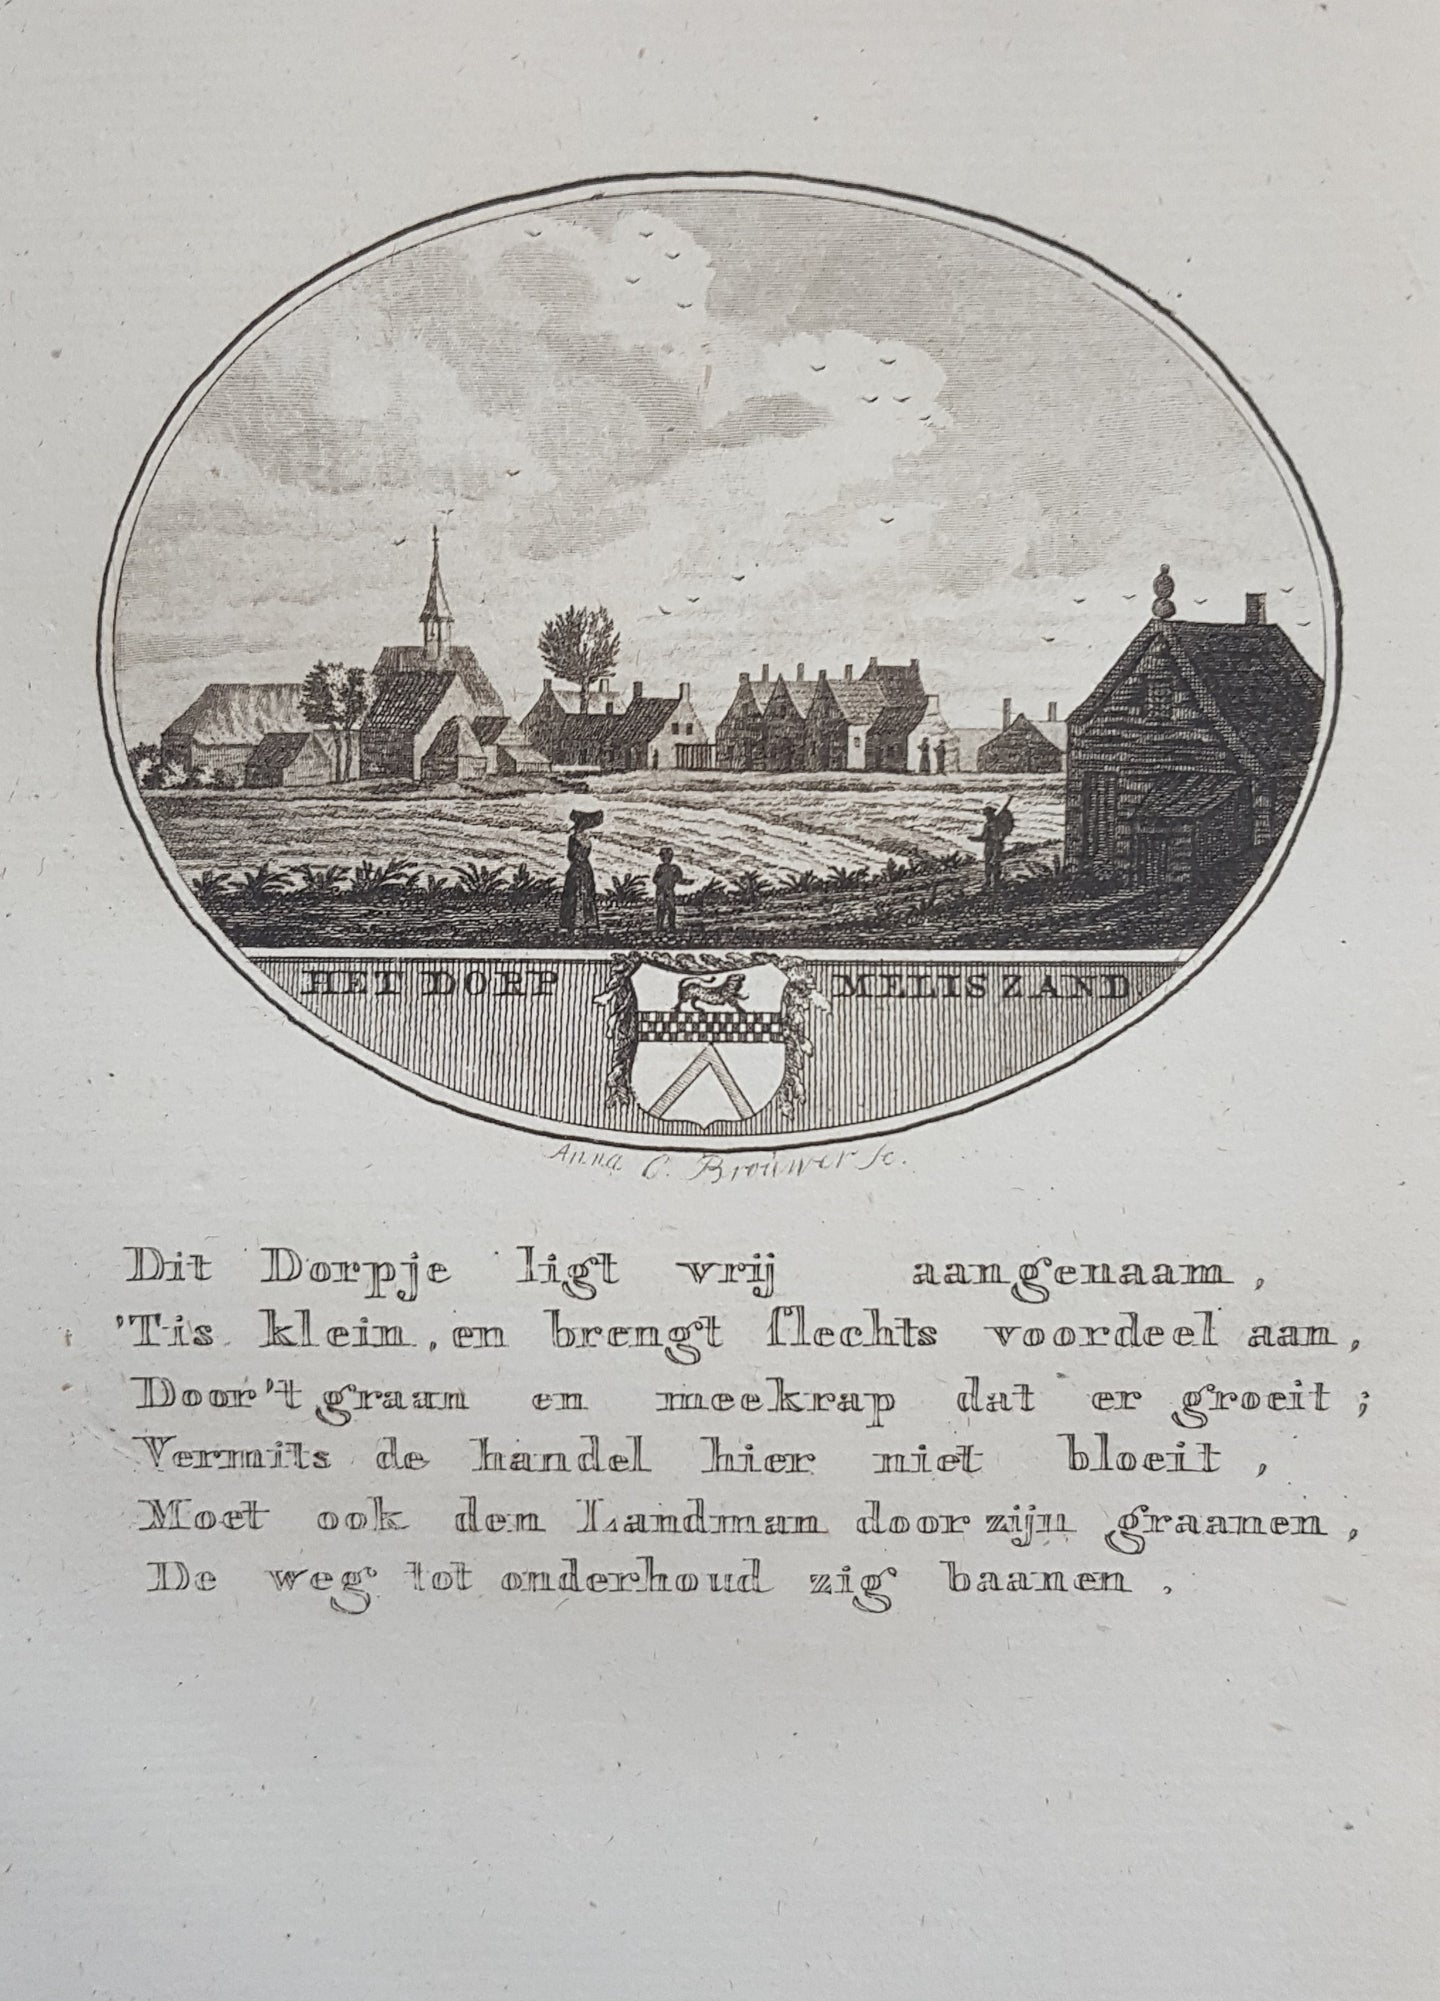 HET DORP MELISZAND
Anna C. Brouwer sc.
Dit Dorpje ligt vrij aangenaam,
'Tis klein, en brengt slechts voordeel aan,
Door 't graan en meekrap dat er groeit;
Vermits de handel hier niet bloeit,
Moet ook den Landman door zijn graanen,
De weg tot onderhoud zig baanen.